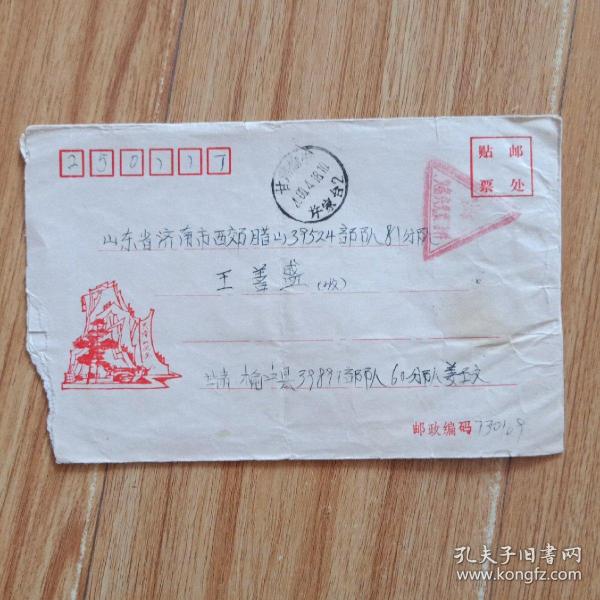 250117
贴邮
票处
许家台2
山东省济南市西郊腊山39524部队81分队
王善盛(收)
甘肃榆中县39891部队61分队姜正文
邮政编码730109
孔夫子旧书网
www.kongfz.com